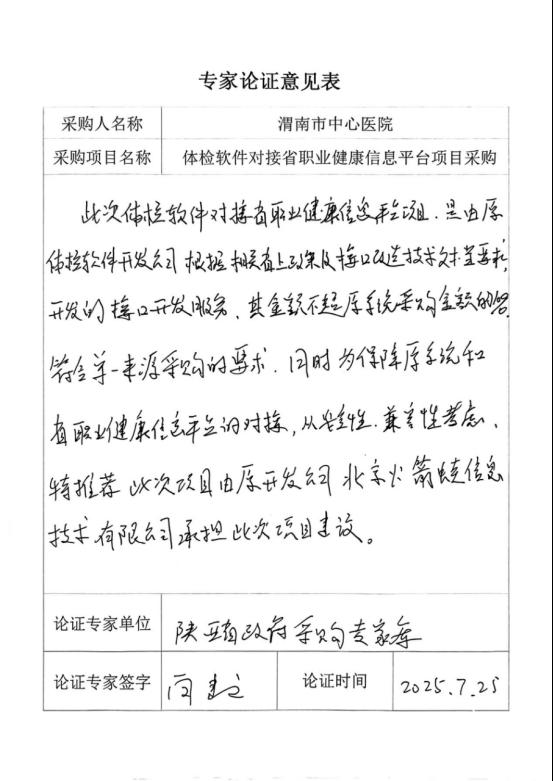 专家论证意见表
采购人名称 渭南市中心医院
采购项目名称 体检软件对接省职业健康信息平台项目采购
此次体检软件对接省职业健康信息平台项目,是由原
体检软件开发公司根据相关省上政策及接口改造技术文本要求,
开发的接口开发服务,其金额不超原系统采购金额的
符合单一来源采购的要求,同时为保障原系统和
省职业健康信息平台的对接,从安全性、兼容性考虑,
特推荐此次项目由原开发公司北京火箭蛙信息
技术有限公司承担此次项目建设。
论证专家单位 陕西省政府采购专家库
论证专家签字 论证时间 2025.7.25